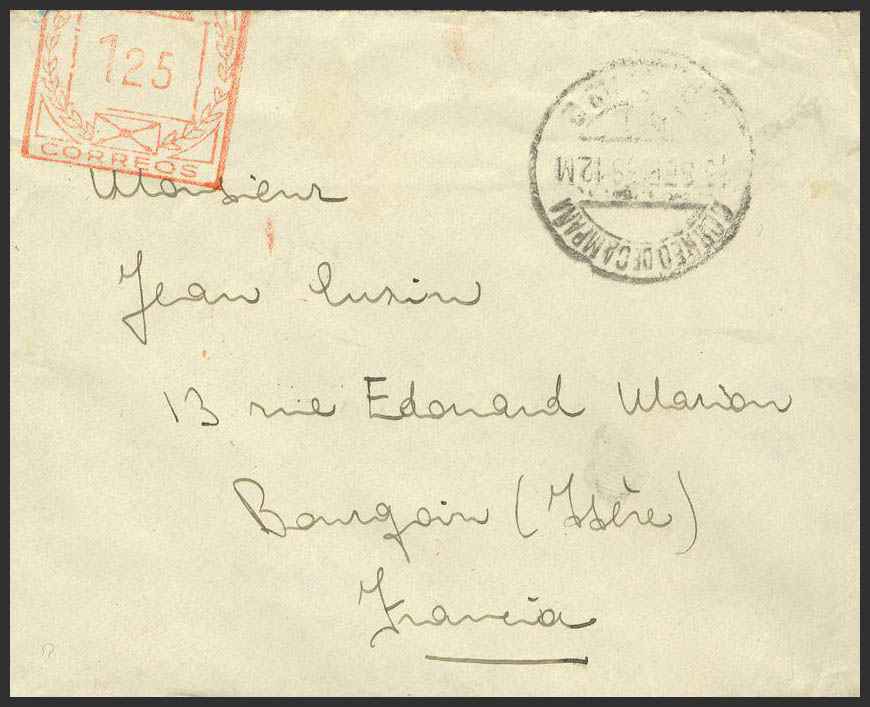 125
CORREOS
SEP 39 12M
CORREO DE CAMPAÑA
Monsieur
Jean Luxin
13 rue Edouard Marion
Bourgoin (Isère)
Francia